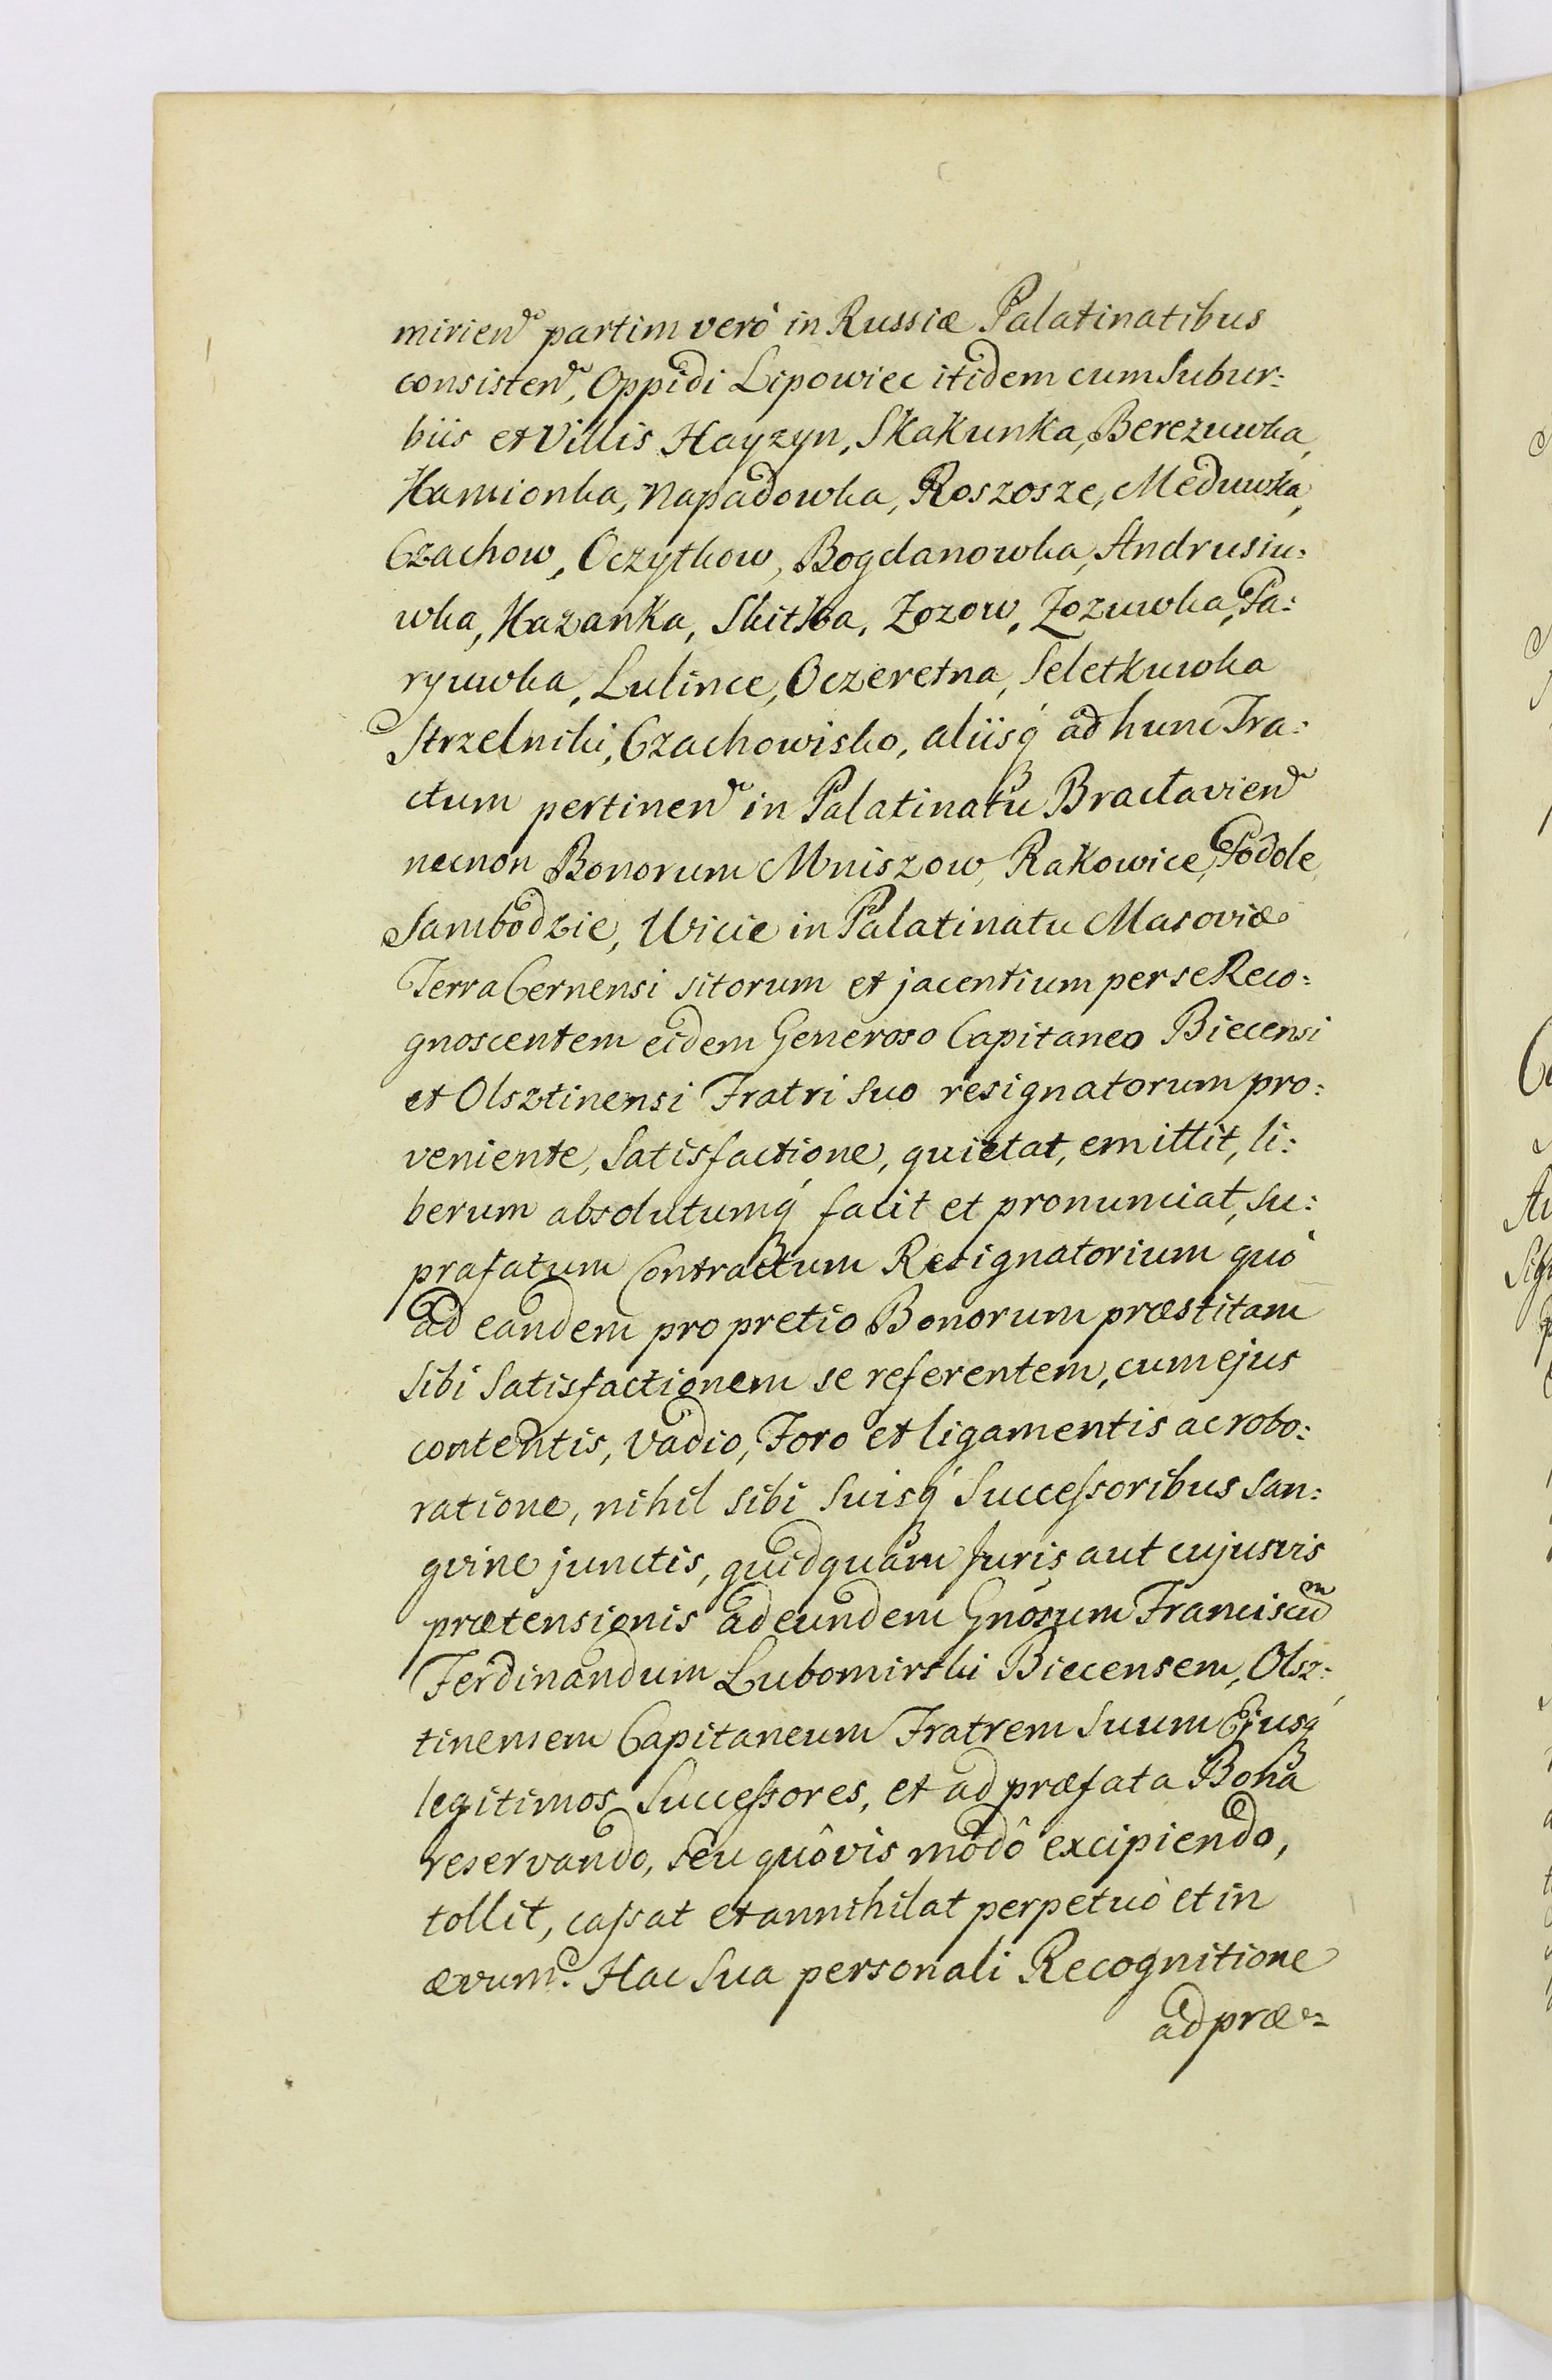 mirien̄ partim verò in Russiæ Palatinatibus
consisten̄, Oppidi Lipowiec itidem cum Subur:
biis et Villis Hayzyn, Skakunka, Berezuwka,
Kamionka, Napadowka, Roszosze, Meduwka,
Czachow, Oczytkow, Bogdanowka, Andrusiu:
wka, Kazanka, Skitka, Zozow, Zozuwka, Pa:
ryuwka, Lulince, Oczeretna, Seletkuwka
Strzelniki, Czachowisko, aliisq́ ad hunc Tra:
ctum pertinen̄ in Palatinatu Braclavien̄
necnon Bonorum Mniszow, Rakowice, Podole,
Sambodzie, Wicie in Palatinatu Masoviæ
Terra Cernensi sitorum et jacentium per se Reco:
gnoscentem eidem Generoso Capitaneo Biecensi
et Olsztinensi Fratri suo resignatorum pro:
veniente, Satisfactione, quietat, emittit, li:
berum absolutumq́ facit et pronunciat, su:
prafatum Contractum Resignatorium quò
ad eandem pro pretio Bonorum præstitam
sibi Satisfactionem se referentem, cum ejus
contentis, vadio, Foro et ligamentis ac robo:
ratione, nihil sibi Suisq́ Successoribus San:
gvine junctis, quidquam Juris aut cujusvis
prætensionis ad eundem Gnōsum Franciscū
Ferdinandum Lubomirski Biecensem, Olsz:
tinensem Capitaneum Fratrem Suum Ejusq́
legitimos Successores, et ad præfata Bona
reservando, seu quôvis modô excipiendo,
tollit, cassat et annihilat perpetuò et in
ævum. Hac Sua personali Recognitione
ad præ=